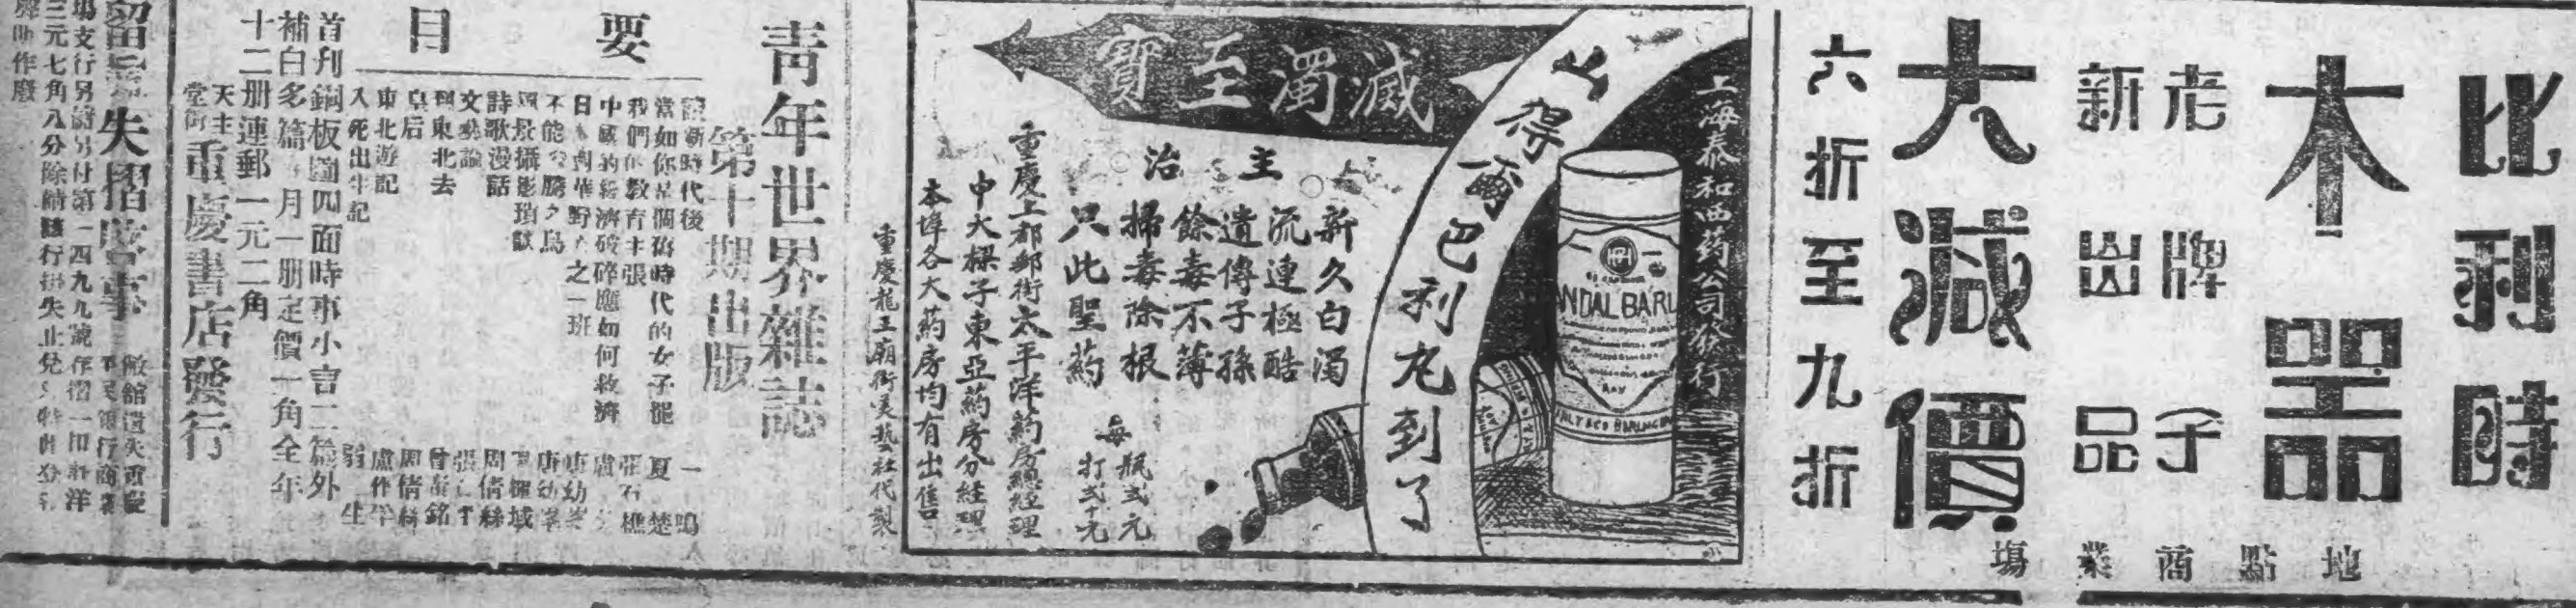 比利時
木器
老牌子
新出品
大減價
六折至九折
地點商業場
上海泰和西药公司發行
山得爾巴利丸到了
NDAL BARL
滅濁至寶
主治
新久白濁
流連極酷
遺傳子孫
餘毒不薄
掃毒除根
只此聖药
每瓶弍元
打弍十元
重慶上都郵街太平洋药房總經理
中大樑子東亞药房分經理
本埠各大药房均有出售
重慶龍王廟街美藝社代製
青年世界雜誌
第十期出版
要目
新時代後 一鳴
當如你是個舊時代的女子罷 夏楚
我們的教育主張 張石樵
中國的經濟破碎應如何救濟
之一班 唐幼峯
不能 唐幼峯
風景攝影瑣談
詩歌漫話 周倩絲
文藝論
到東北去 曾
皇后 周倩絲
東北遊記 盧作孚
入死出生記 弱生
首刋銅板圖四面時事小言二篇外
補白多篇 月一册定價一角全年
十二册連郵一元二角
天主堂街重慶書店發行
失摺
敝館遺失重慶
平民銀行商業
場支行 第一四九九號存摺一扣計洋
三元七角八分除 該行掛失止兌 特此登報
聲明作廢